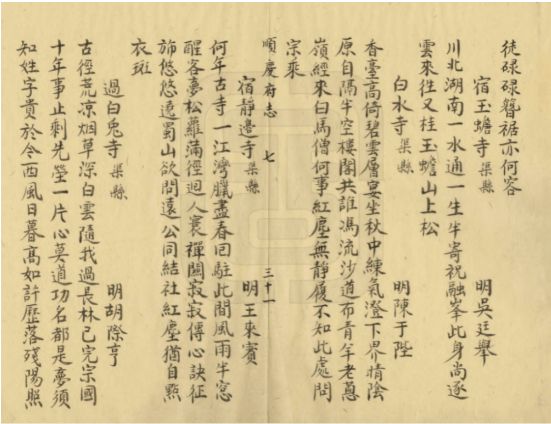 徒碌碌聱裾亦何客
宿玉蟾寺 渠縣 明吳廷舉
川北湖南一水通一生半寄祝融峯此身尚逐
雲來往又挂玉蟾山上松
白水寺 渠縣 明陳于陛
香臺高倚碧雲層宴坐秋中練氣澄下界晴陰
原自隔半空樓閣共誰馮流沙道布青牛老蔥
嶺經來白馬僧何事紅塵無靜履不知此處問
宗乘
順慶府志 七 三十一
宿靜邊寺 渠縣 明王來賓
何年古寺一江灣臘盡春回駐此間風雨半窓
醒客夢松蘿滿徑迴人寰禪關寂寂傳心訣征
斾悠悠遠蜀山欲問遠公同結社紅塵猶自㸃
衣斑
過白兎寺 渠縣 明胡際亨
古徑荒凉烟草深白雲隨我過長林已完宗國
十年事止剩先塋一片心莫道功名都是夢須
知姓字貴於今西風日暮高如許歷落殘陽照